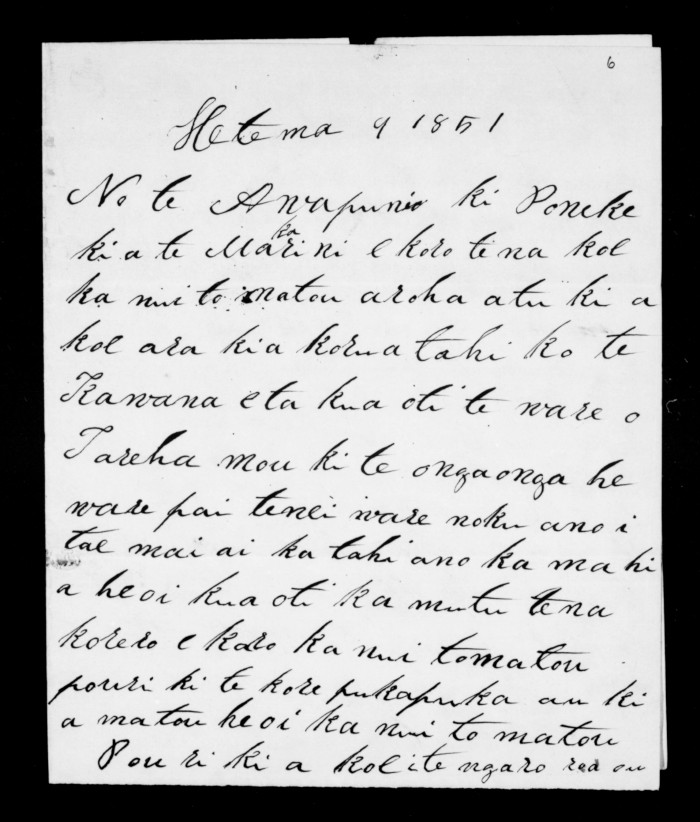 6
Hetema 9 1851
No te Awapuni ki Poneke
ki a te Makarini e koro tena koe
ka nui to matou aroha atu ki a
koe ara kia korua tahi ko te
Kawana eta kua oti te ware o
Tareha mou ki te ongaonga he
ware pai tenei ware noku ano i
tae mai ai ka tahi ano ka mahi
a heoi kua oti ka mutu tena
korero e koro ka nui to matou
pouri ki te kore pukapuka au ki
a matou heoi ka nui to matou
Pouri ki a koe i te ngaro roa ou